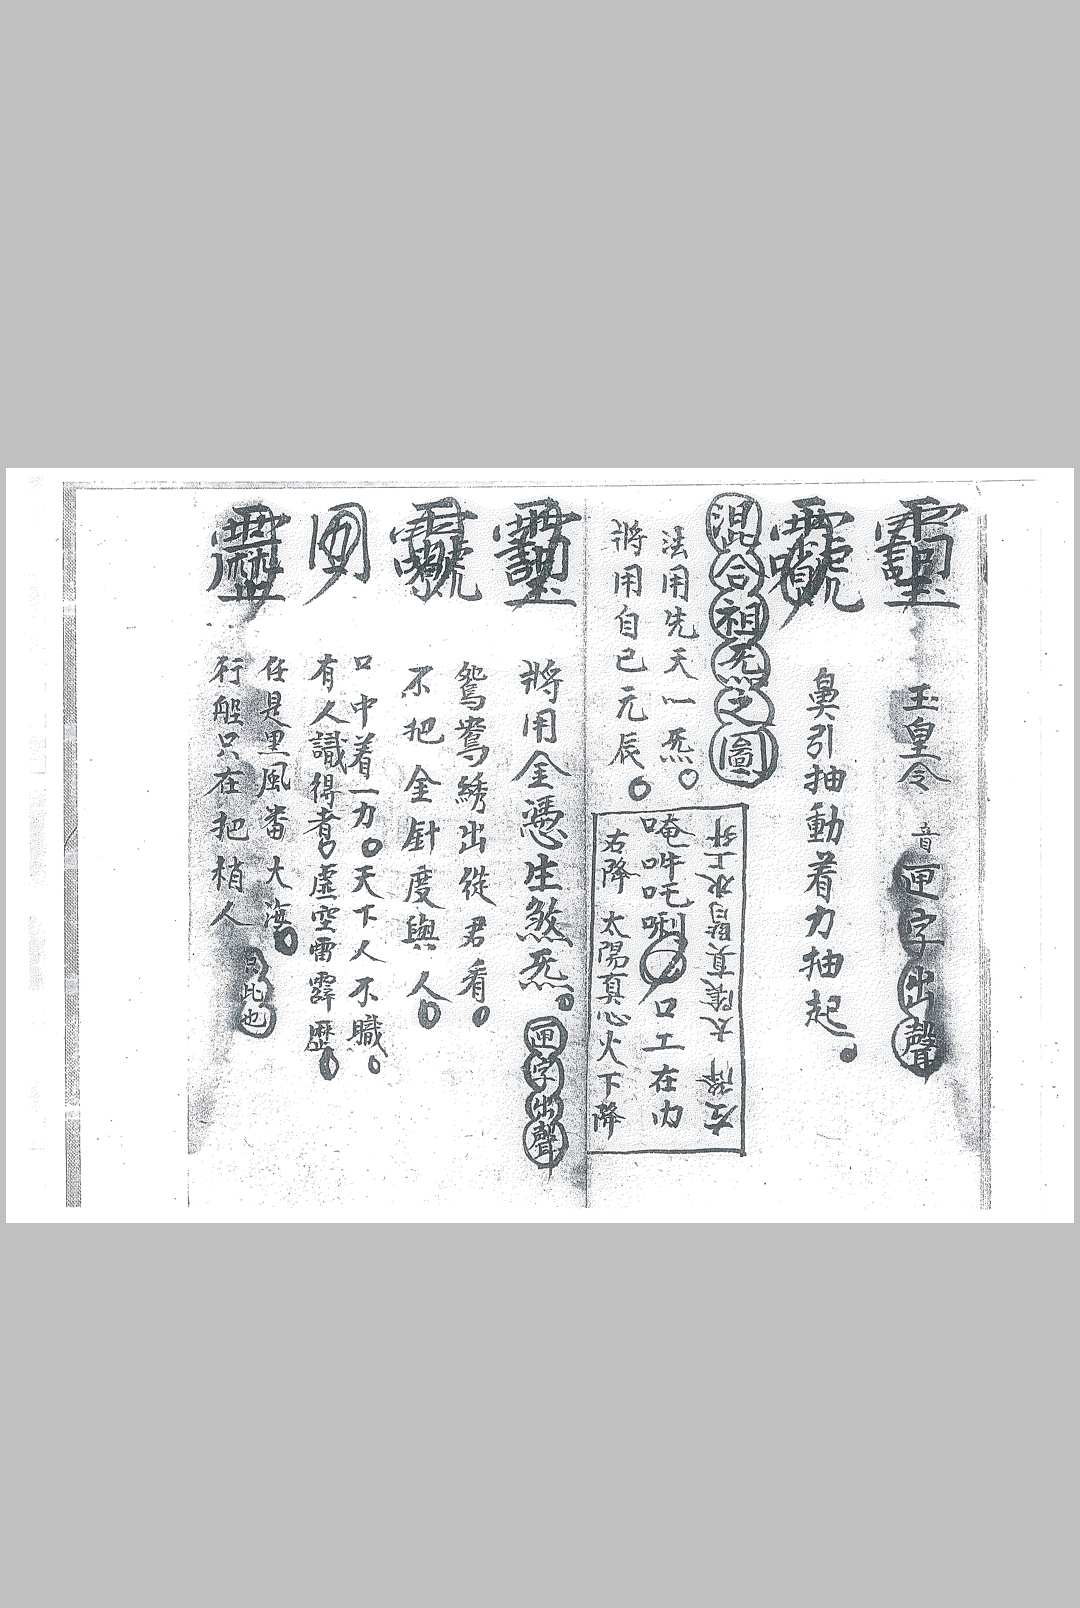 玉皇令 音匣字出聲
鼻引抽動着力抽起
混合祖炁之圖
法用先天一炁
將用自己元辰
左降 太陰真腎水上升
唵吽吒唎 口工在內
右降 太陽真心火下降
將用金憑生煞炁 匣字出聲
鴛鴦綉出從君看
不把金針度與人
口中着一力 天下人不職
有人識得者 虛空雷霹靂
任是黑風番大海
行船只在把梢人 此也